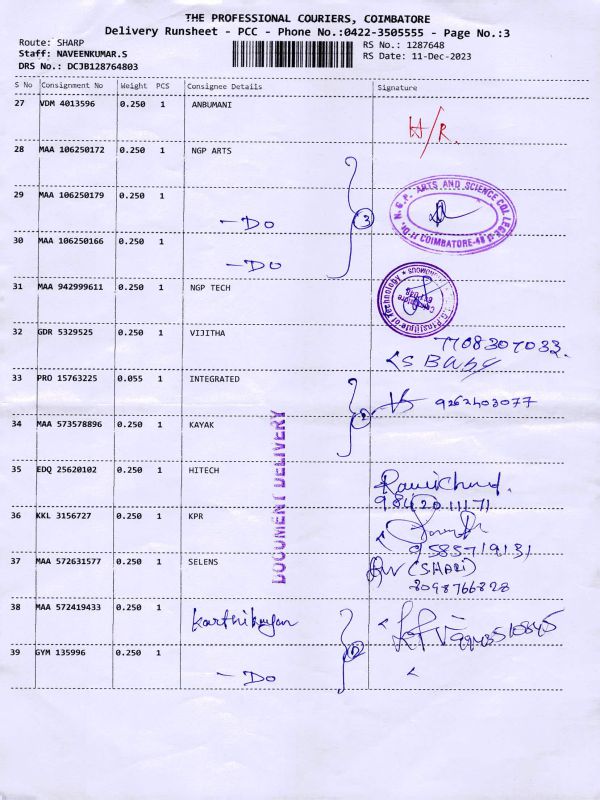 THE PROFESSIONAL COURIERS, COIMBATORE
Delivery Runsheet - PCC - Phone No.:0422-3505555 - Page No.:3
Route: SHARP
RS No.: 1287648
Staff: NAVEENKUMAR.S
RS Date: 11-Dec-2023
DRS No.: DCJB128764803
S No Consignment No Weight PCS Consignee Details Signature
27 VDM 4013596 0.250 1 ANBUMANI
H/R.
28 MAA 106250172 0.250 1 NGP ARTS
29 MAA 106250179 0.250 1
- Do
3
Dr. N.G.P. ARTS AND SCIENCE COLLEGE
COIMBATORE-48
30 MAA 106250166 0.250 1
- Do
31 MAA 942999611 0.250 1 NGP TECH
Institute of Technology
Coimbatore
32 GDR 5329525 0.250 1 VIJITHA
7708307033.
33 PRO 15763225 0.055 1 INTEGRATED
2
9262403077
34 MAA 573578896 0.250 1 KAYAK
DOCUMENT DELIVERY
35 EDQ 25620102 0.250 1 HITECH
9842011171
36 KKL 3156727 0.250 1 KPR
9585719131
37 MAA 572631577 0.250 1 SELENS
(SHARI)
8098766828
38 MAA 572419433 0.250 1 Karthikeyan
9943510845
2
39 GYM 135996 0.250 1
- Do